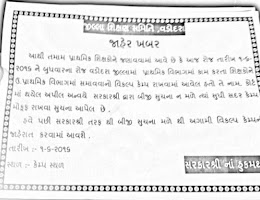 જિલ્લા શિક્ષણ સમિતિ, વડોદરા
જાહેર ખબર
આથી તમામ પ્રાથમિક શિક્ષકોને જણાવવામાં આવે છે કે આજ રોજ તારીખ ૧-૬-
૨૦૧૬ ને બુધવારના રોજ વડોદરા જીલ્લામાં પ્રાથમિક વિભાગમાં કામ કરતા શિક્ષકોને
ઉ.પ્રાથમિક વિભાગમાં સમાવવાનો વિકલ્પ કેમ્પ રાખવામાં આવેલ હતો તે નામ. કોર્ટ
માં થયેલ અપીલ અન્વયે સરકારશ્રી દ્વારા બીજી સુચના ન મળે ત્યાં સુધી સદર કેમ્પ
મોકૂફ રાખવા સુચના આપેલ છે.
હવે પછી સરકારશ્રી તરફ થી બીજી સુચના મળે થી અગામી વિકલ્પ કેમ્પની
જાહેરાત કરવામાં આવશે.
તારીખ :- ૧-૬-૨૦૧૬
સ્થળ :- કેમ્પ સ્થળ
સરકારશ્રી નાં હુકમથી